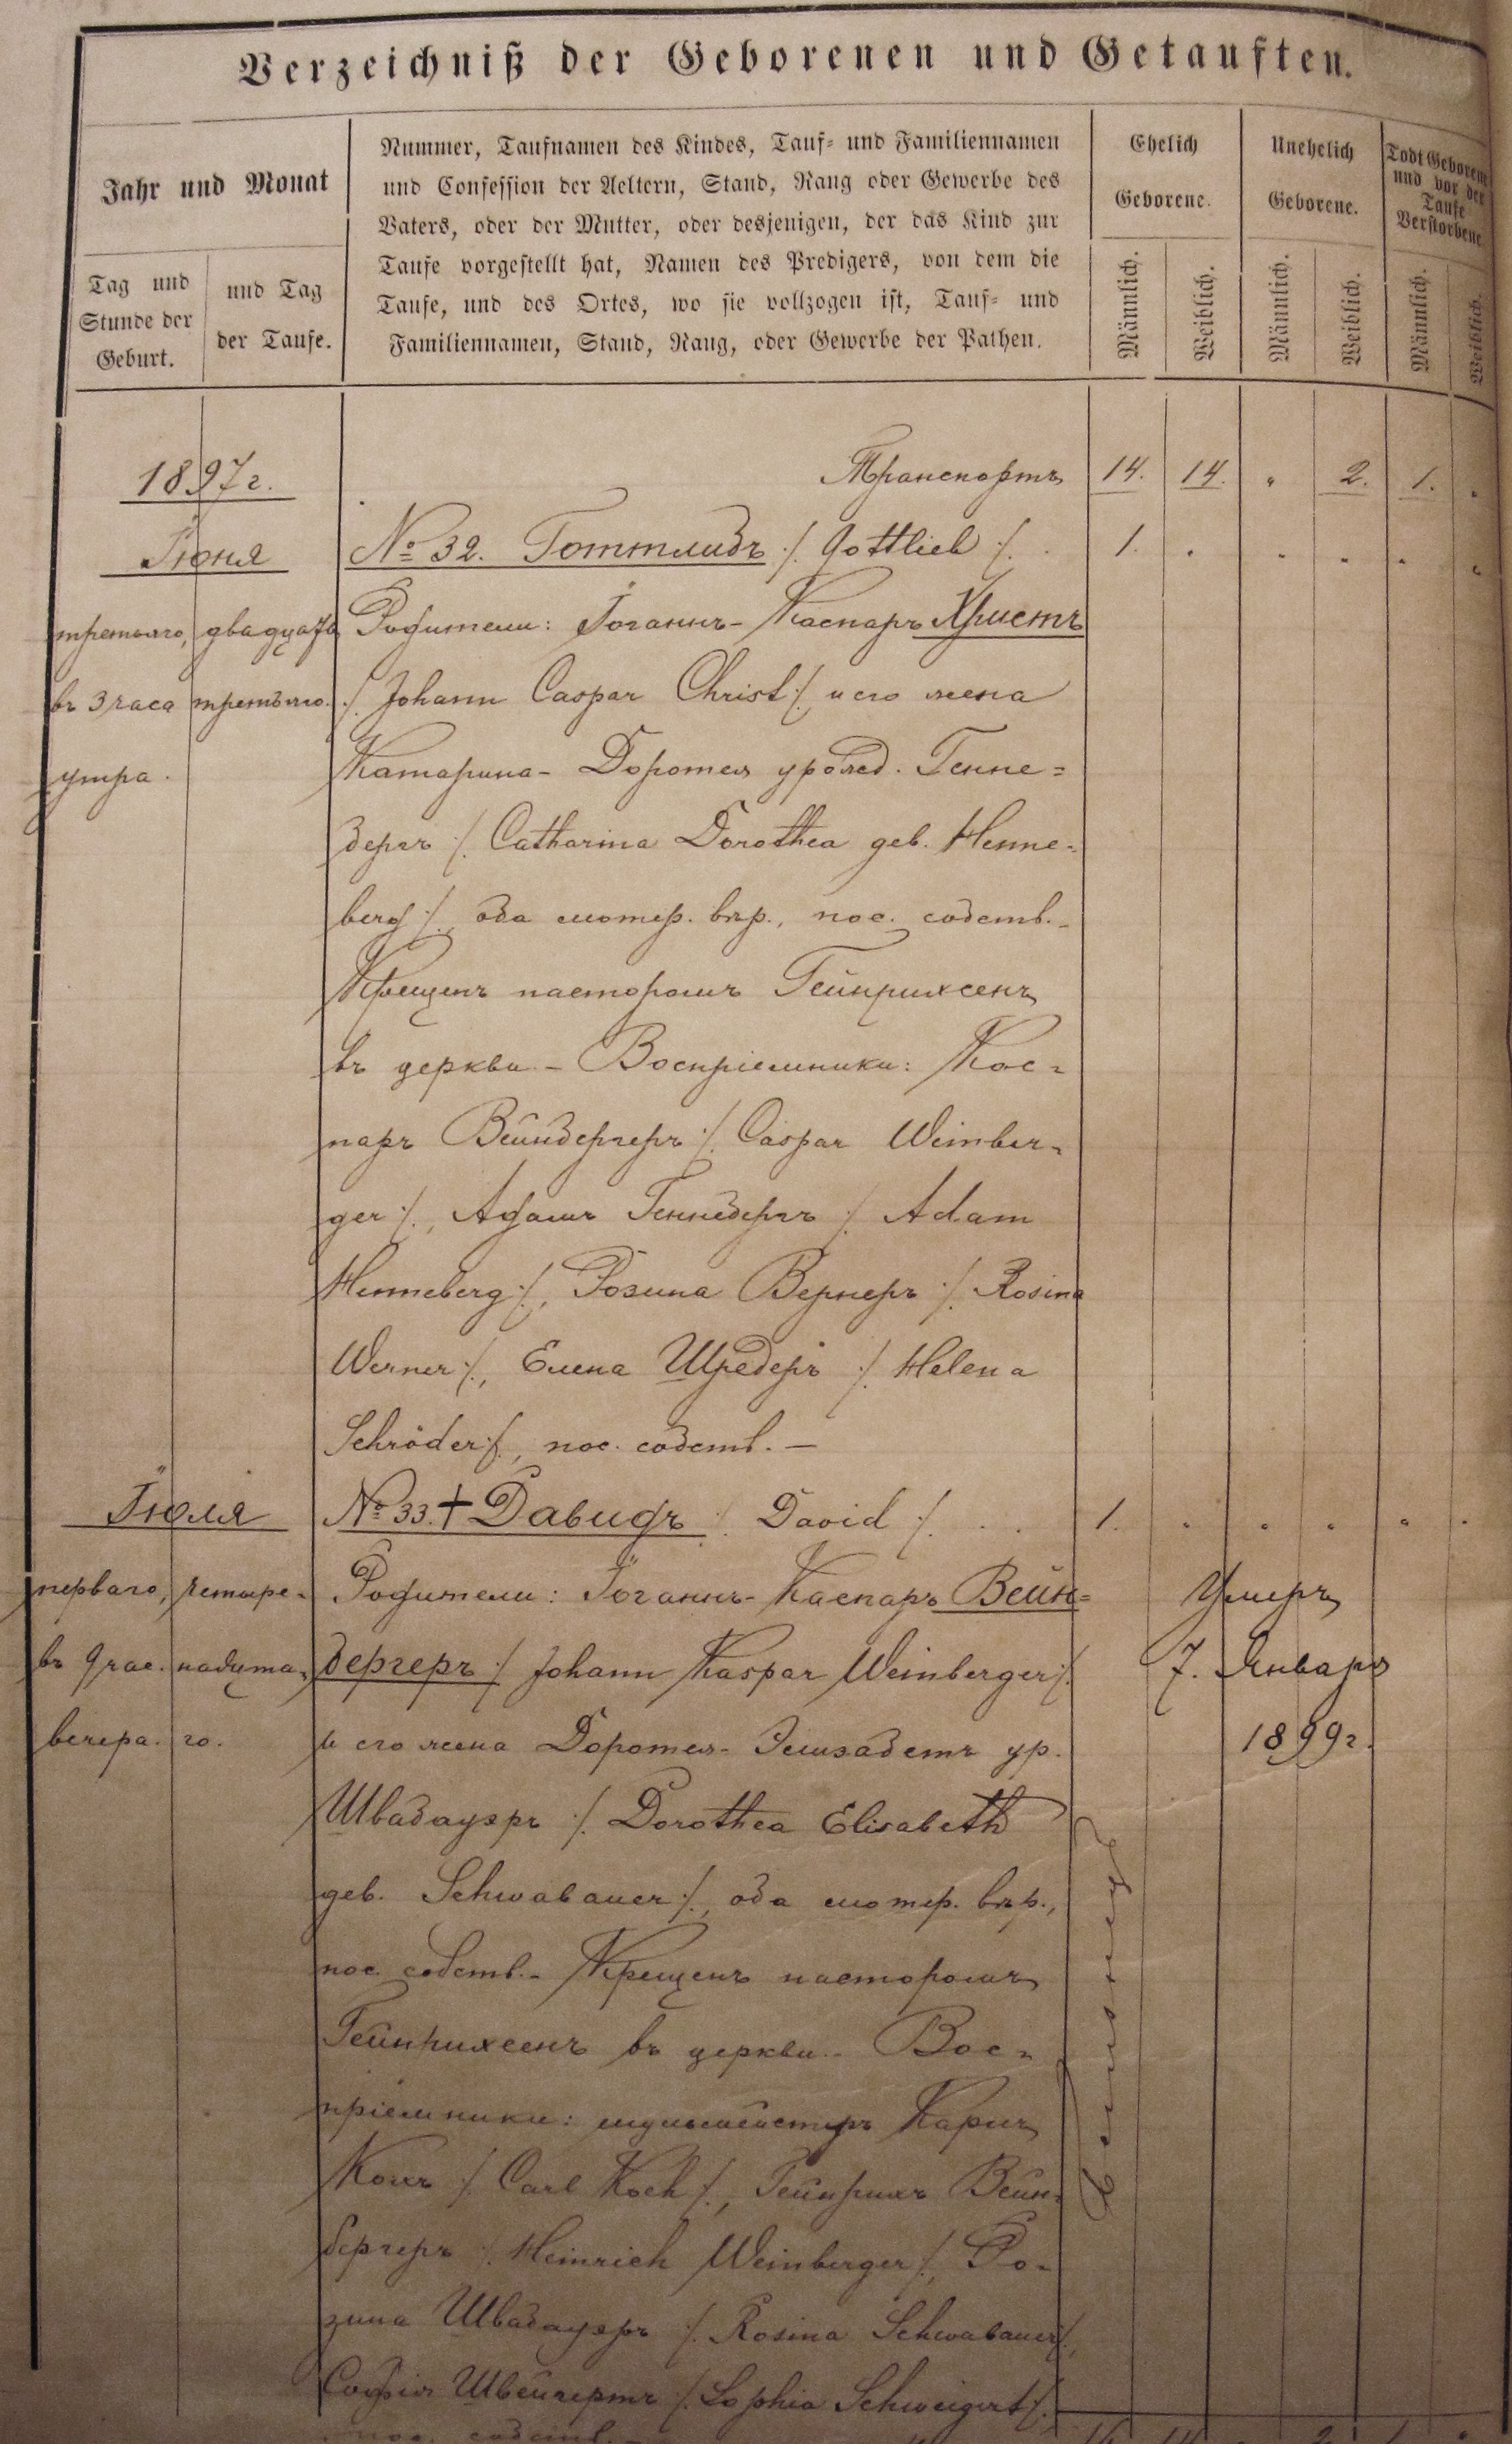 Verzeichniß der Geborenen und Getauften.
Jahr und Monat
Tag und
Stunde der
Geburt.
und Tag
der Taufe.
Nummer, Taufnamen des Kindes, Tauf- und Familiennamen
und Confession der Aeltern, Stand, Rang oder Gewerbe des
Vaters, oder der Mutter, oder desjenigen, der das Kind zur
Taufe vorgestellt hat, Namen des Predigers, von dem die
Taufe, und des Ortes, wo sie vollzogen ist, Tauf- und
Familiennamen, Stand, Rang, oder Gewerbe der Pathen.
Ehelich
Geborene.
Unehelich
Geborene.
Todt Geborene
und vor der
Taufe
Verstorbene
Männlich.
Weiblich.
Männlich.
Weiblich.
Männlich.
Weiblich.
1897 г. Транспортъ 14. 14. " 2. 1. "
Іюня № 32. Готтлибъ ·/. Gottlieb ·/. 1. " " " " "
третьяго, двадцать Родители: Іоганнъ-Каспаръ Христъ
въ 3 часа третьяго. ·/. Johann Caspar Christ ·/. и его жена
утра. Катарина-Доротея урожд. Генне=
бергъ ·/. Catharina Dorothea geb. Henne=
berg ·/., оба лютер. вѣр., пос. собств. -
Крещенъ пасторомъ Гейнрихсенъ
въ церкви. - Воспріемники: Кас=
паръ Вейнбергеръ ·/. Caspar Weinber=
ger ·/., Адамъ Геннебергъ ·/. Adam
Henneberg ·/., Розина Вернеръ ·/. Rosina
Werner ·/., Елена Шредеръ ·/. Helena
Schröder ·/., пос. собств. -
Іюля № 33. + Давидъ ·/. David ·/. 1. " " " " "
перваго, четыре- Родители: Іоганнъ-Каспаръ Вейн=
въ 9 час. надцата- бергеръ ·/. Johann Kaspar Weinberger ·/.
вечера. го. и его жена Доротея-Элизабетъ ур.
Швабауэръ ·/. Dorothea Elisabeth
geb. Schwabauer ·/., оба лютер. вѣр.,
пос. собств. - Крещенъ пасторомъ
Гейнрихсенъ въ церкви. - Вос=
пріемники: шульмейстеръ Карлъ
Кохъ ·/. Carl Koch ·/., Гейнрихъ Вейн=
бергеръ ·/. Heinrich Weinberger ·/., Ро=
зина Швабауэръ ·/. Rosina Schwabauer ·/.,
Софія Швейгертъ ·/. Sophia Schweigert ·/.
пос. собств. -
Умеръ
7. Января
1899 г.